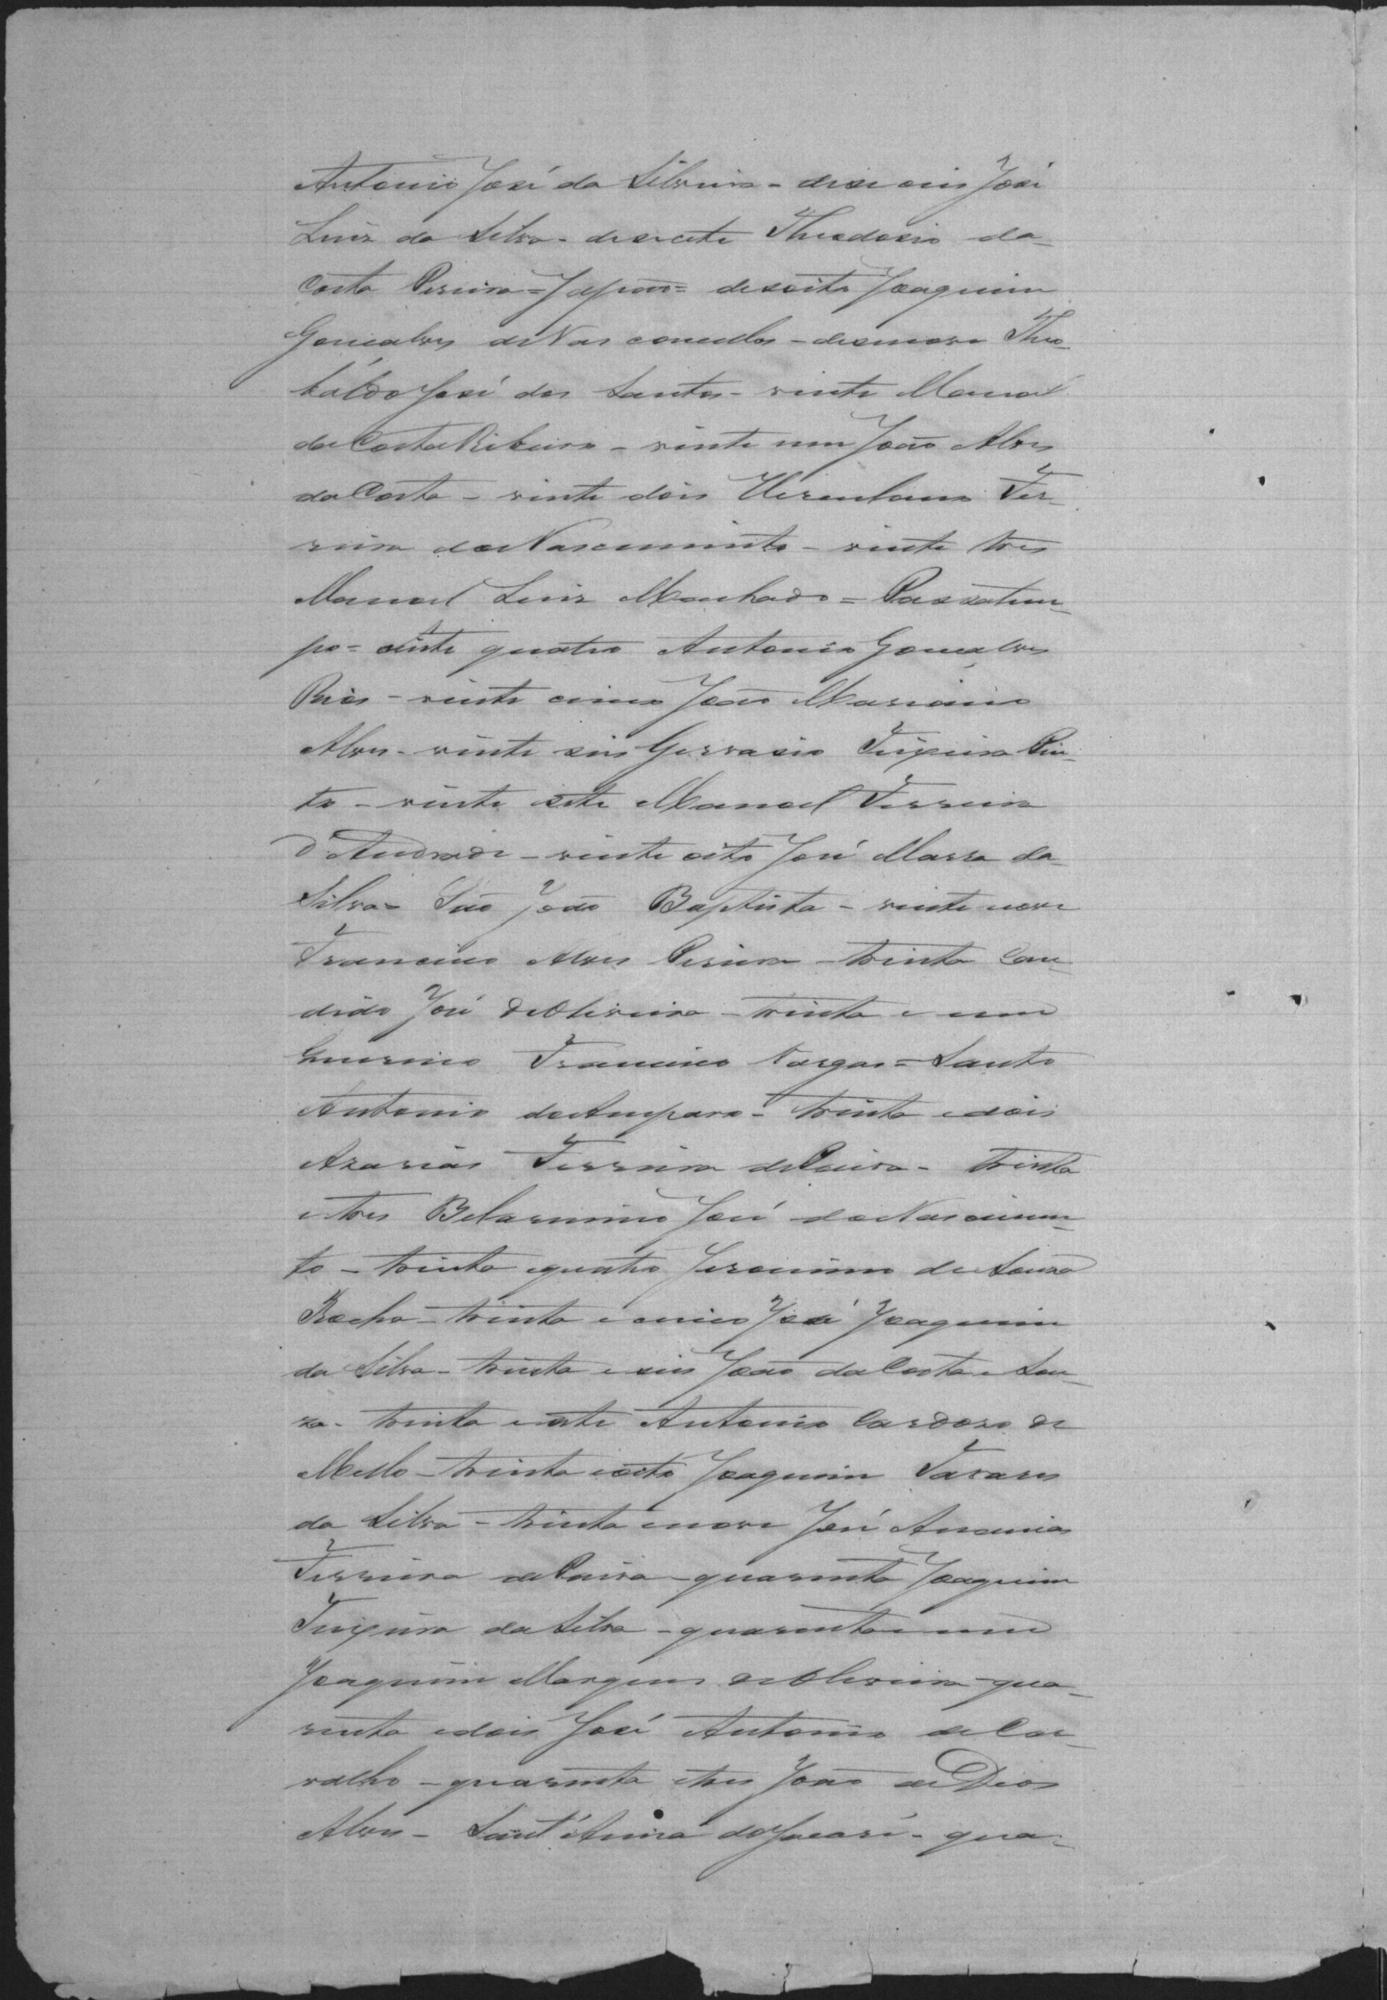 Antonio José da Silveira - deseseis José
Luiz da Silva - desesete Theodosio da
Costa Pereira = Japão = desoito Joaquim
Gonçalves de Vasconcellos - desenove Theo-
baldo José dos Santos - vinte Manoel
da Costa Ribeiro - vinte um João Alves
da Costa - vinte dois Herculano Fer-
reira do Nascimento - vinte tres
Manoel Luiz Machado = Passatem-
po = vinte quatro Antonio Gonçalves
Rios - vinte cinco João Marianno
Alves - vinte seis Gervasio Teixeira Pin-
to - vinte sete Manoel Ferreira
d'Andrade - vinte oito José Massa da
Silva = São João Baptista - vinte nove
Francisco Alves Pereira - trinta Can-
dido José d'Oliveira - trinta e um
Francisco Vargas = Santo
Antonio do Amparo - trinta e dois
Azarias Ferreira de Paiva - trinta
e tres Belarmino José do Nascimen-
to - trinta e quatro Jeronimo de Souza
Rocha - trinta e cinco José Joaquim
da Silva - trinta e seis João da Costa e Sou-
za - trinta e sete Antonio Cardoso de
Mello - trinta e oito Joaquim Tavares
da Silva - trinta e nove José Ananias
Ferreira de Paiva - quarenta Joaquim
Teixeira da Silva - quarenta e um
Joaquim Marques de Oliveira - qua-
renta e dois José Antonio de Car-
valho - quarenta e tres João de Deos
Alves - Sant'Anna do Jacaré - qua-